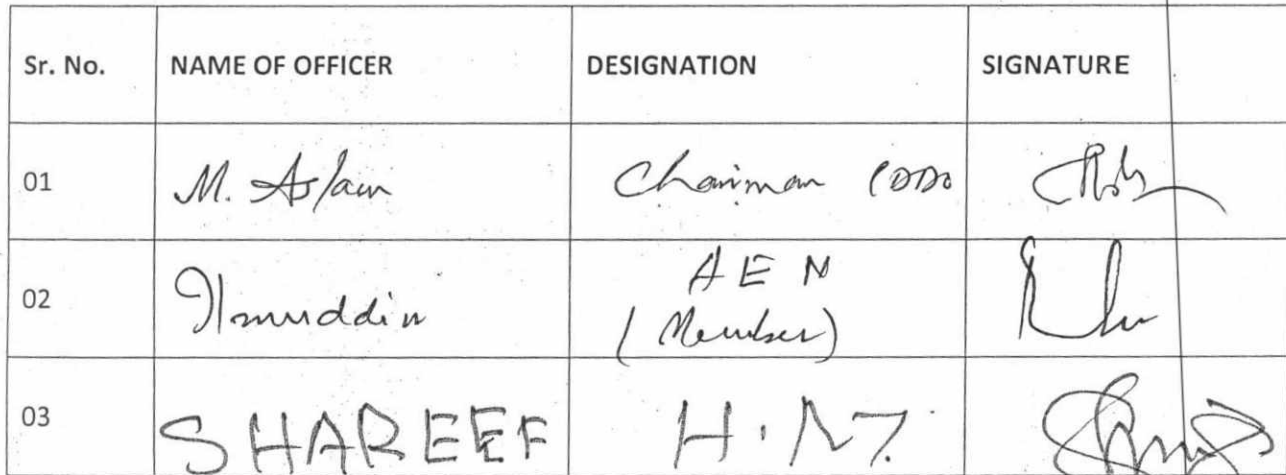 Sr. No. NAME OF OFFICER DESIGNATION SIGNATURE
01 M. Aslam Chairman
02 Ilmuddin AEN
(Member)
03 SHAREEF H.M.